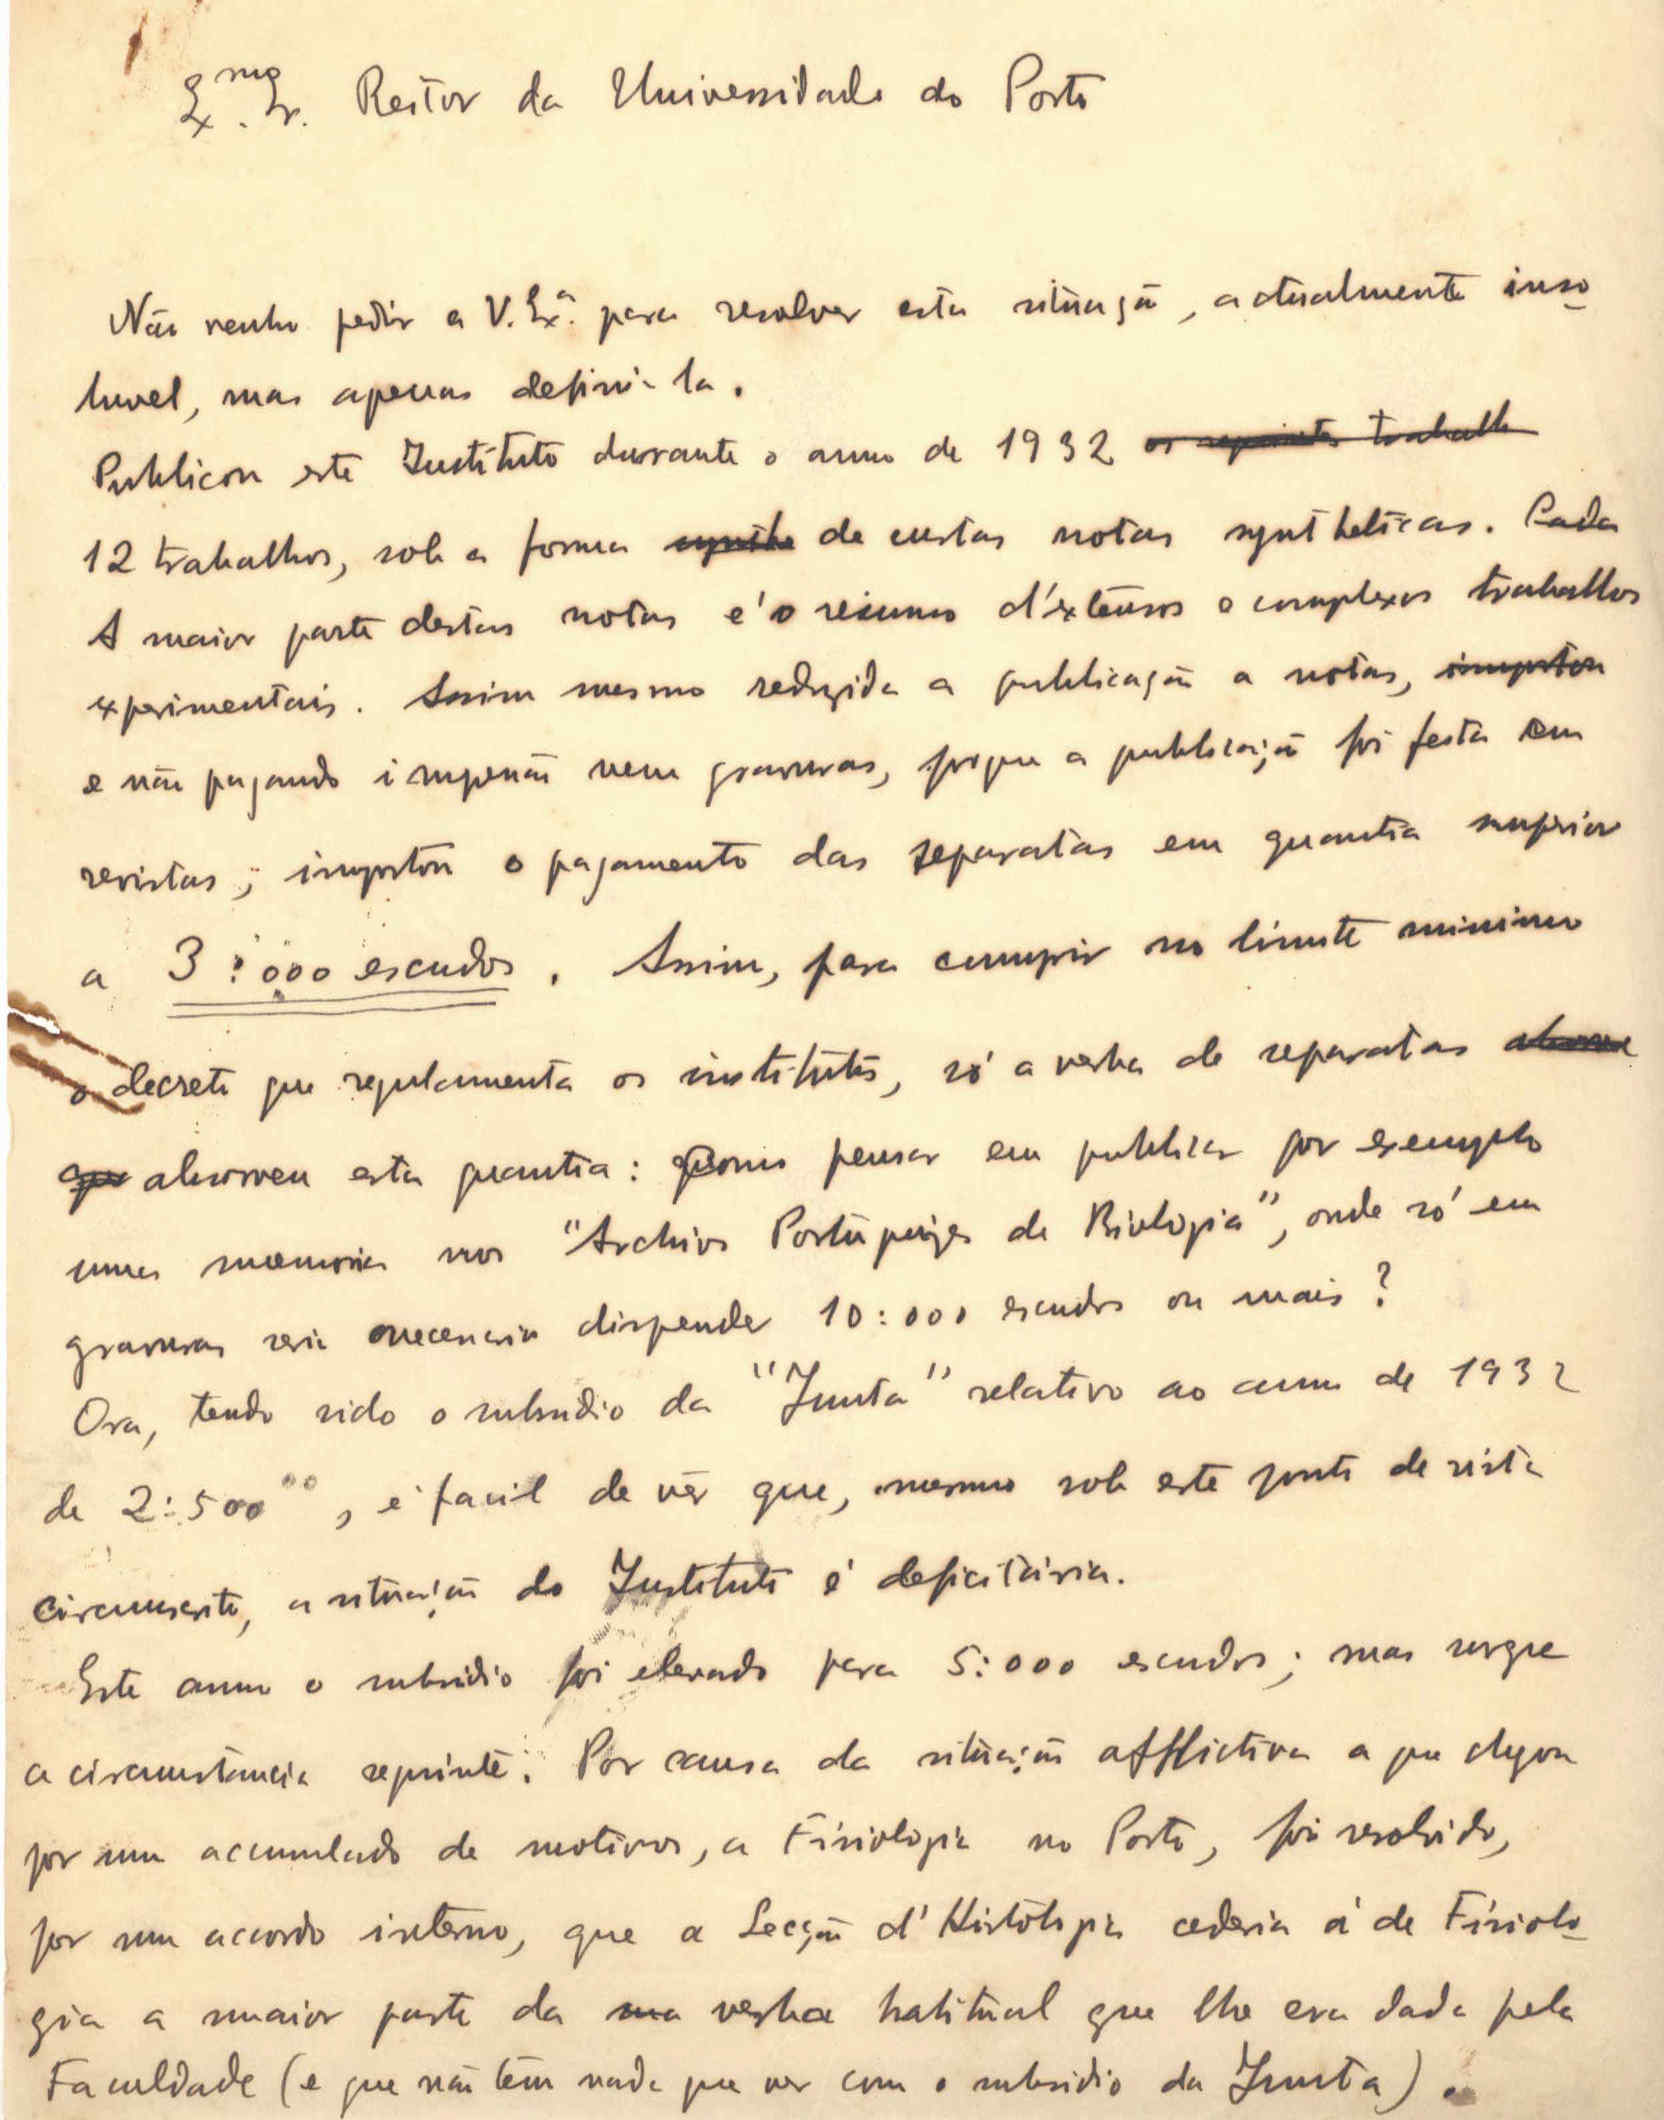 Ex.mo Sr. Reitor da Universidade do Porto
Não venho pedir a V. Exª. para resolver esta situação, actualmente inso-
luvel, mas apenas defini-la.
Publicou este Instituto durante o anno de 1932 os seguintes trabalh
12 trabalhos, sob a forma synthe de curtas notas syntheticas. Cada
A maior parte destas notas é o resumo d'extensos e complexos trabalhos
experimentais. Assim mesmo reduzida a publicação a notas, importou
e não pagando impressão nem gravuras, porque a publicação foi feita em
revistas, importou o pagamento das separatas em quantia superior
a 3:000 escudos. Assim, para cumprir no limite minimo
o decreto que regulamenta os institutos, só a verba de separatas absorve
que absorveu esta quantia: Como pensar em publicar por exemplo
uma memoria nos "Archivos Portuguezes de Biologia", onde só em
gravuras seria necessario dispender 10:000 escudos ou mais?
Ora, tendo sido o subsidio da "Junta" relativo ao anno de 1932
de 2:500⁰⁰, é facil de vêr que, mesmo sob este ponto de vista
circumscrito, a situação do Instituto é deficitária.
Este anno o subsidio foi elevado para 5:000 escudos; mas surge
a circumstancia seguinte: Por causa da situação afflictiva a que chegou
por um accumulado de motivos, a Fisiologia no Porto, foi resolvido,
por um accordo interno, que a Secção d'Histologia cederia á de Fisiolo-
gia a maior parte da sua verba habitual que lhe era dada pela
Faculdade (e que não têm nada que ver com o subsidio da Junta).